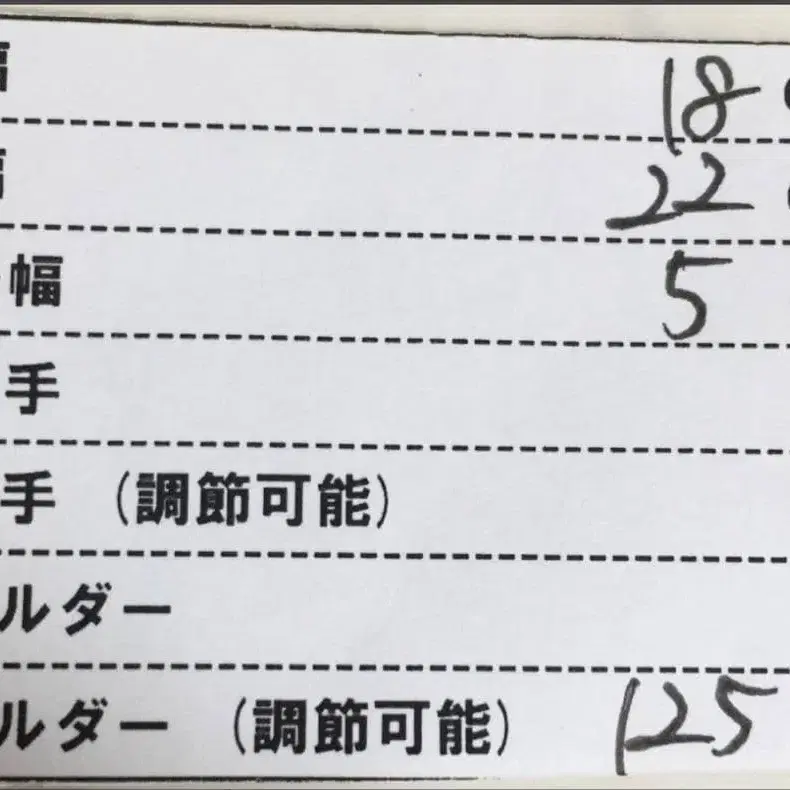 幅 18
幅 22
幅 5
手
手 (調節可能)
ルダー
ルダー (調節可能) 125